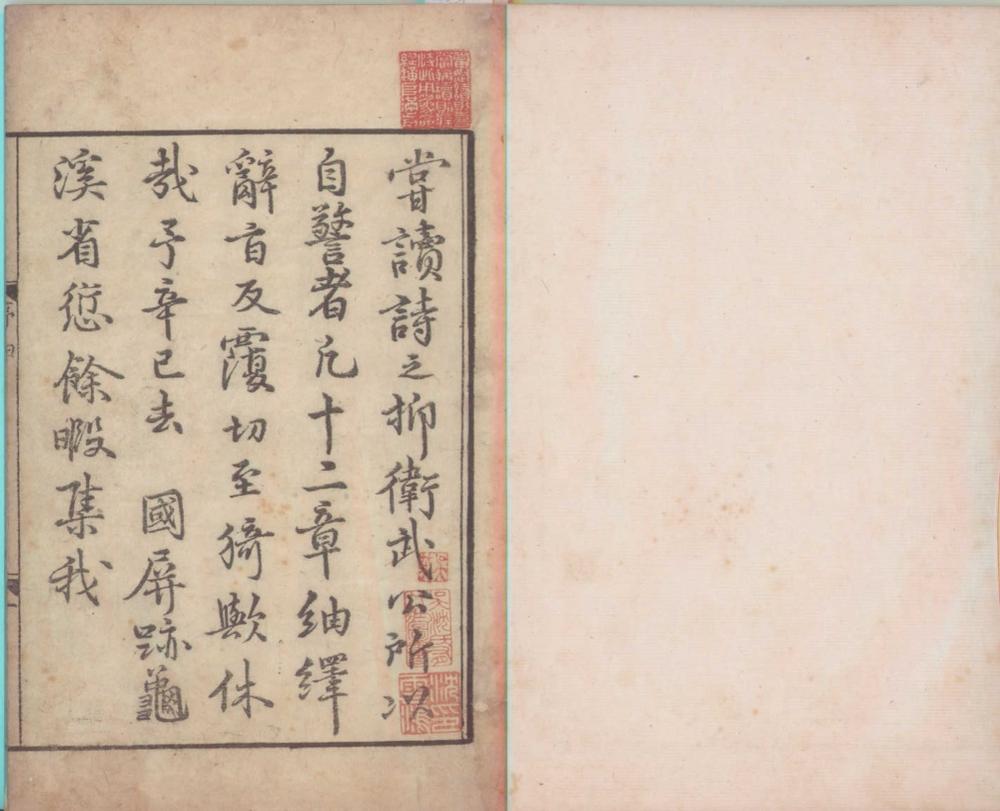 甞讀詩之抑衛武公所以
自警者凡十二章紬繹
辭旨反覆切至猗歟休
哉予辛巳去 國屏跡龜
溪省愆餘暇集我